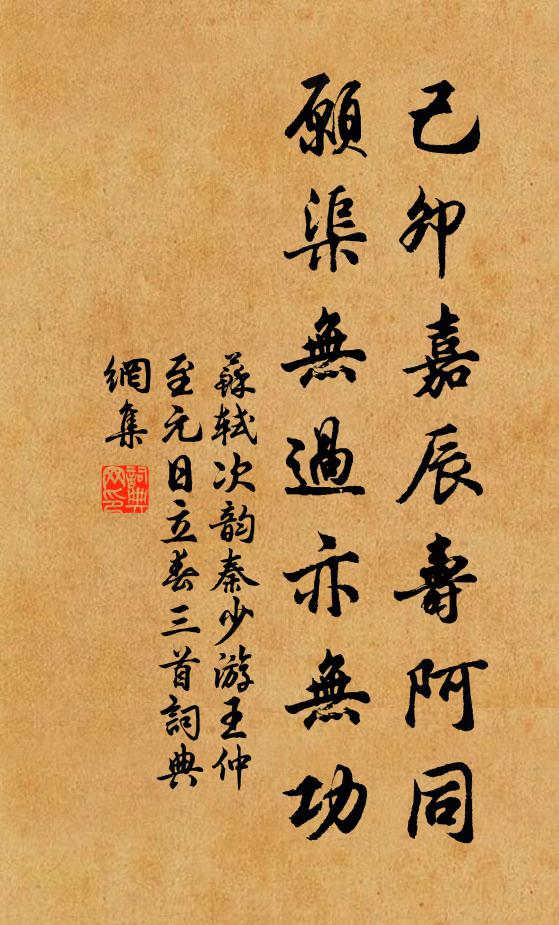 己卯嘉辰壽阿同
願渠無過亦無功
蘇軾次韵秦少游王仲
至元日立春三首詞典
網集
詞典網印